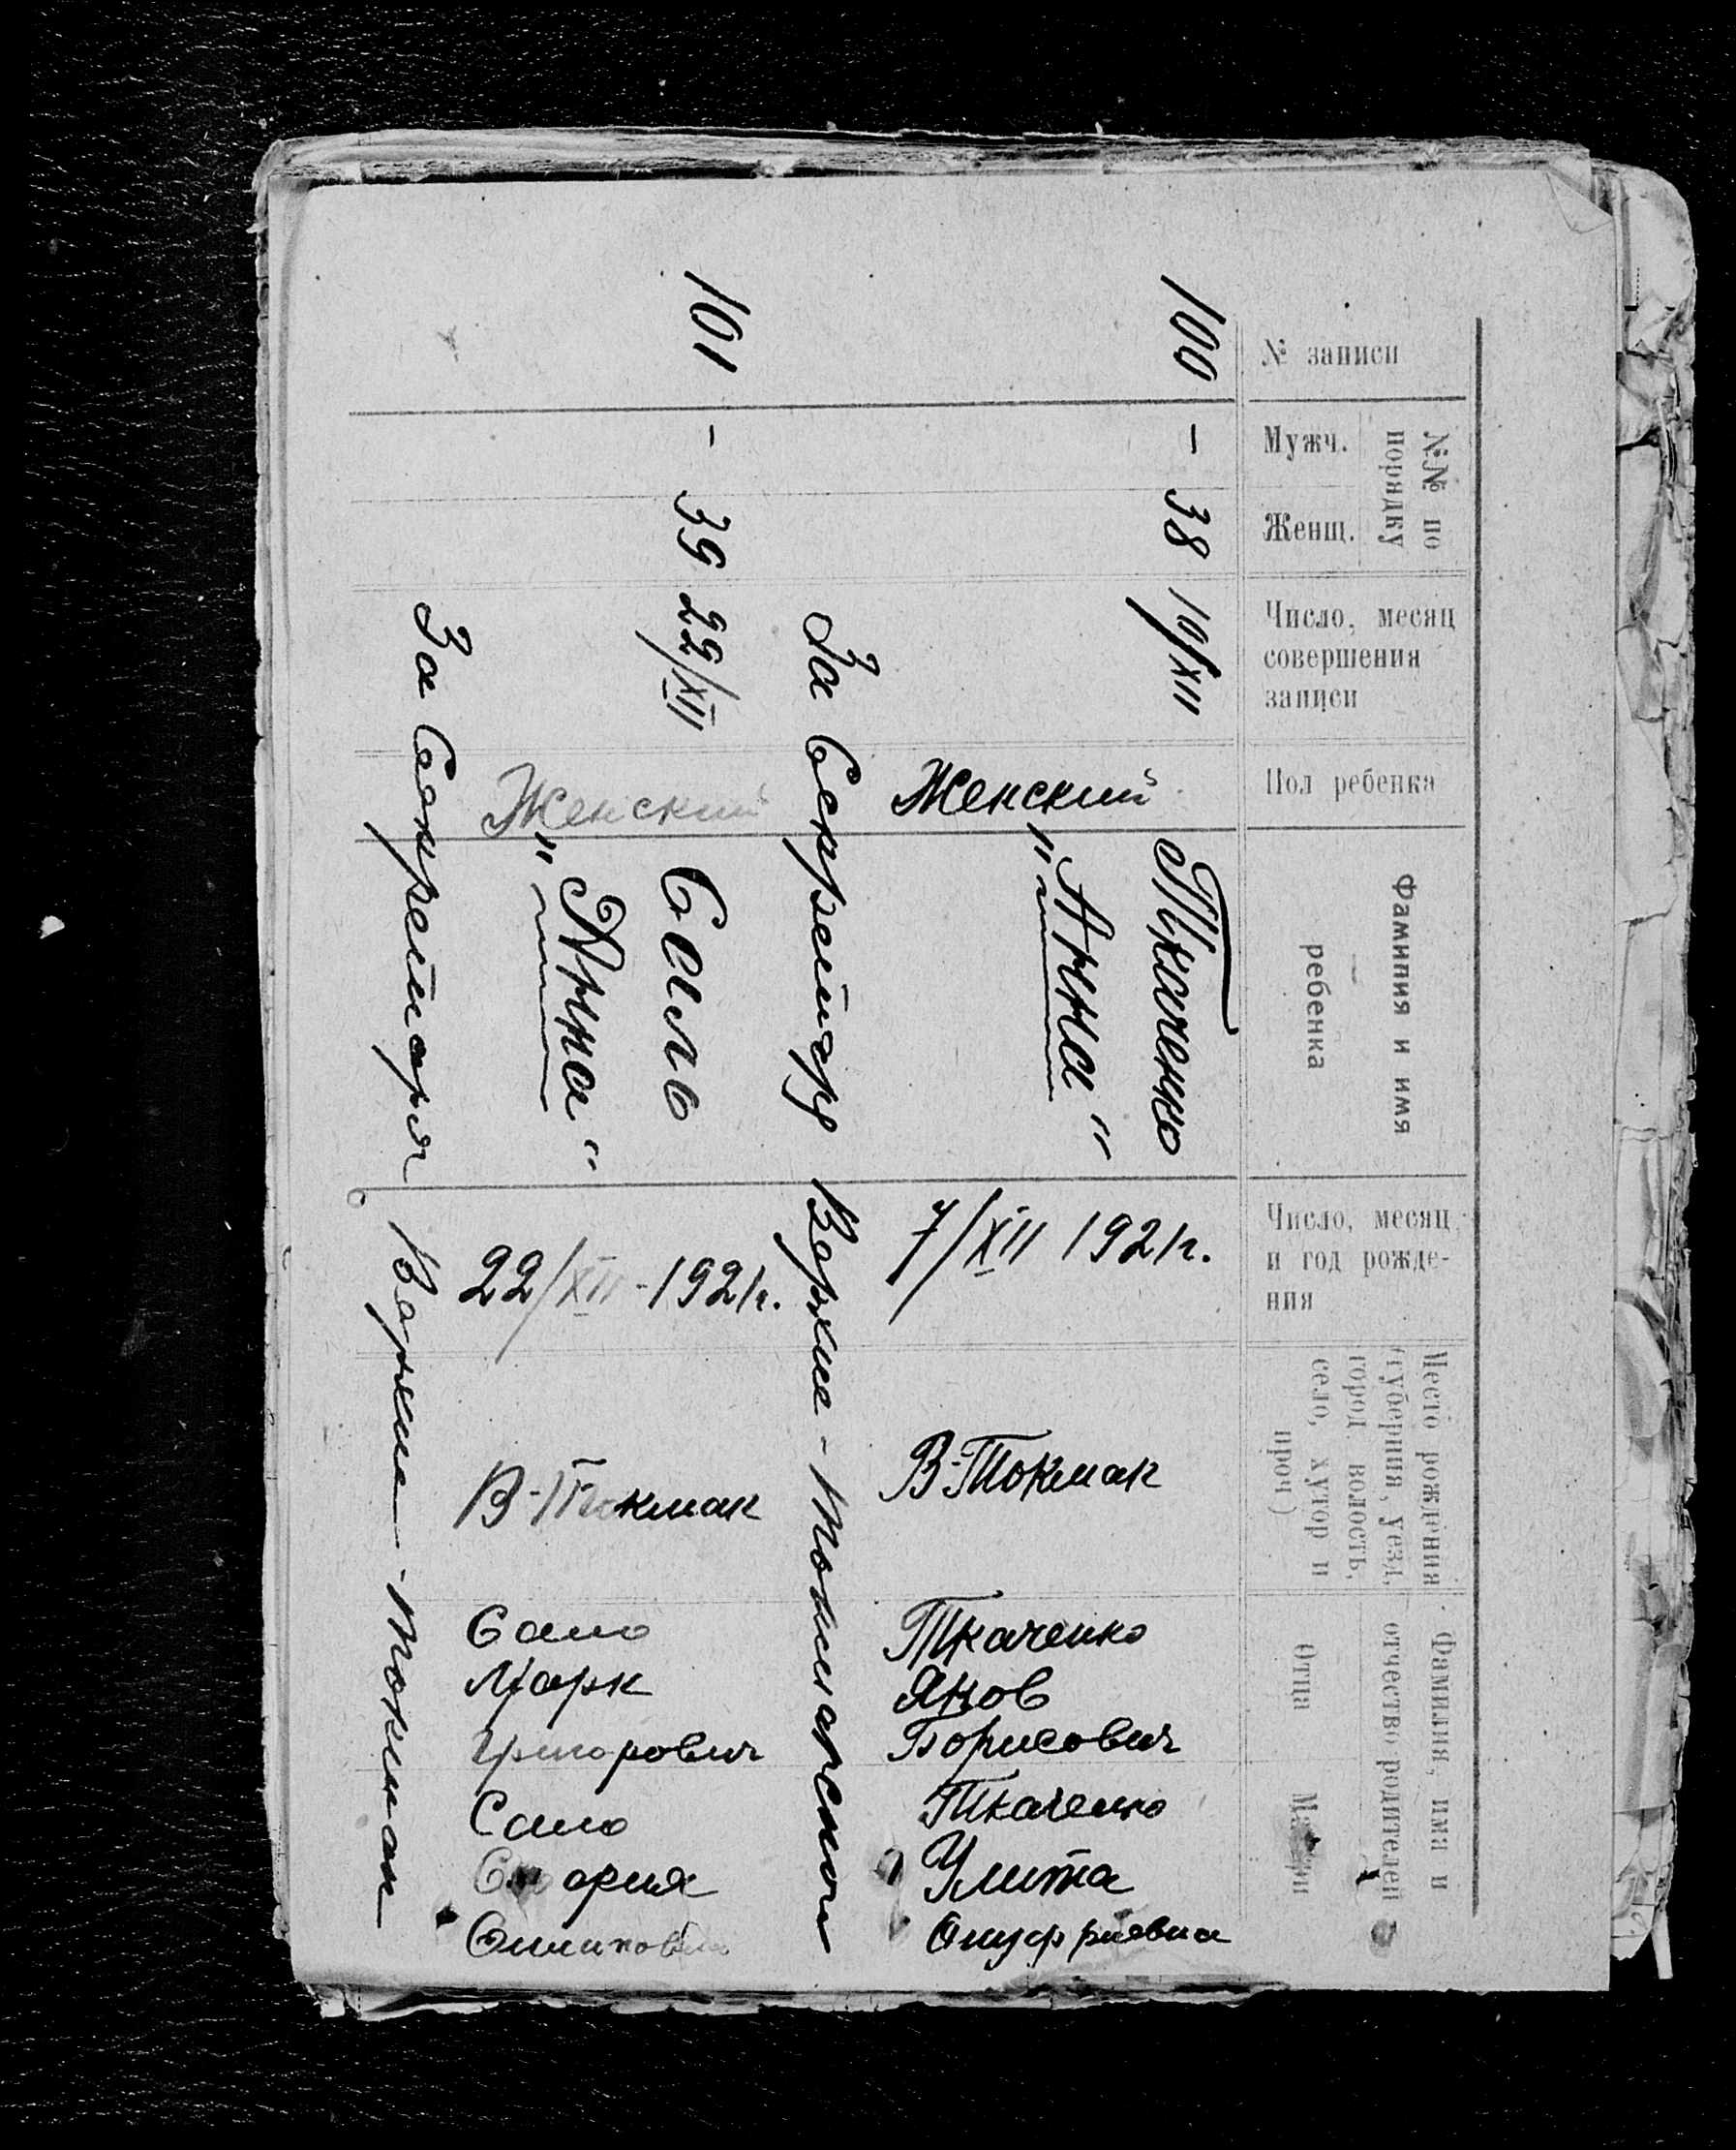 № записи
№№ по
порядку
Мужч.
Женщ.
Число, месяц
совершения
записи
Пол ребенка
Фамилия и имя
ребенка
Число, месяц
и год рожде-
ния
Место рождения
(губерния, уезд,
город волость,
село, хутор и
проч)
Фамилия, имя и
отчество родителей
Отца
Матери
100
-
38
19/XII
Женский
Ткаченко
"Анна"
7/XII 1921г.
В-Токмак
Ткаченко
Яков
Борисович
Ткаченко
Улита
Онуфриевна
За Секретаря Верхне-Токмакской
101
-
39
22/XII
Женский
Сало
"Анна"
22/XII-1921г.
В-Токмак
Сало
Марк
Григорович
Сало
За Секретаря Верхне-Токмак